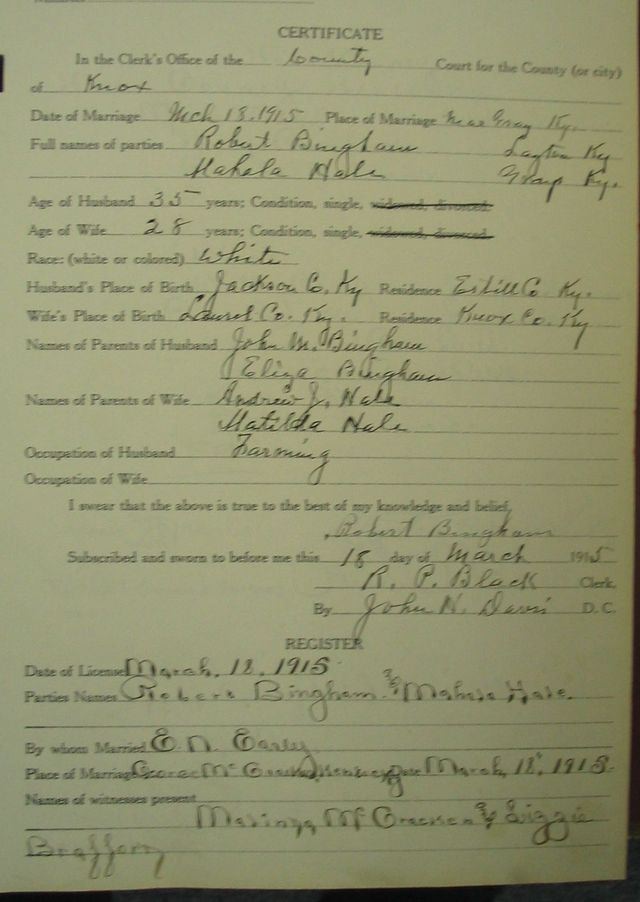 CERTIFICATE
In the Clerk's Office of the County Court for the County (or city)
of Knox
Date of Marriage Mch 18. 1915 Place of Marriage near Gray Ky.
Full names of parties Robert Bingham Ky
Mahala Hale Gray Ky.
Age of Husband 35 years; Condition, single, widowed, divorced.
Age of Wife 28 years; Condition, single, widowed, divorced.
Race: (white or colored) White
Husband's Place of Birth Jackson Co. Ky Residence Estill Co Ky.
Wife's Place of Birth Laurel Co. Ky. Residence Knox Co. Ky
Names of Parents of Husband John M. Bingham
Eliza Bingham
Names of Parents of Wife Andrew J. Hale
Matilda Hale
Occupation of Husband Farming
Occupation of Wife
I swear that the above is true to the best of my knowledge and belief,
Robert Bingham
Subscribed and sworn to before me this 18 day of March 1915
R. P. Black Clerk.
By John H. Davis D. C.
REGISTER
Date of License March, 18, 1915.
Parties Names Robert Bingham & Mahala Hale.
By whom Married E. N. Early
Place of Marriage Date March, 18, 1915.
Names of witnesses present
McCracken & Lizzie